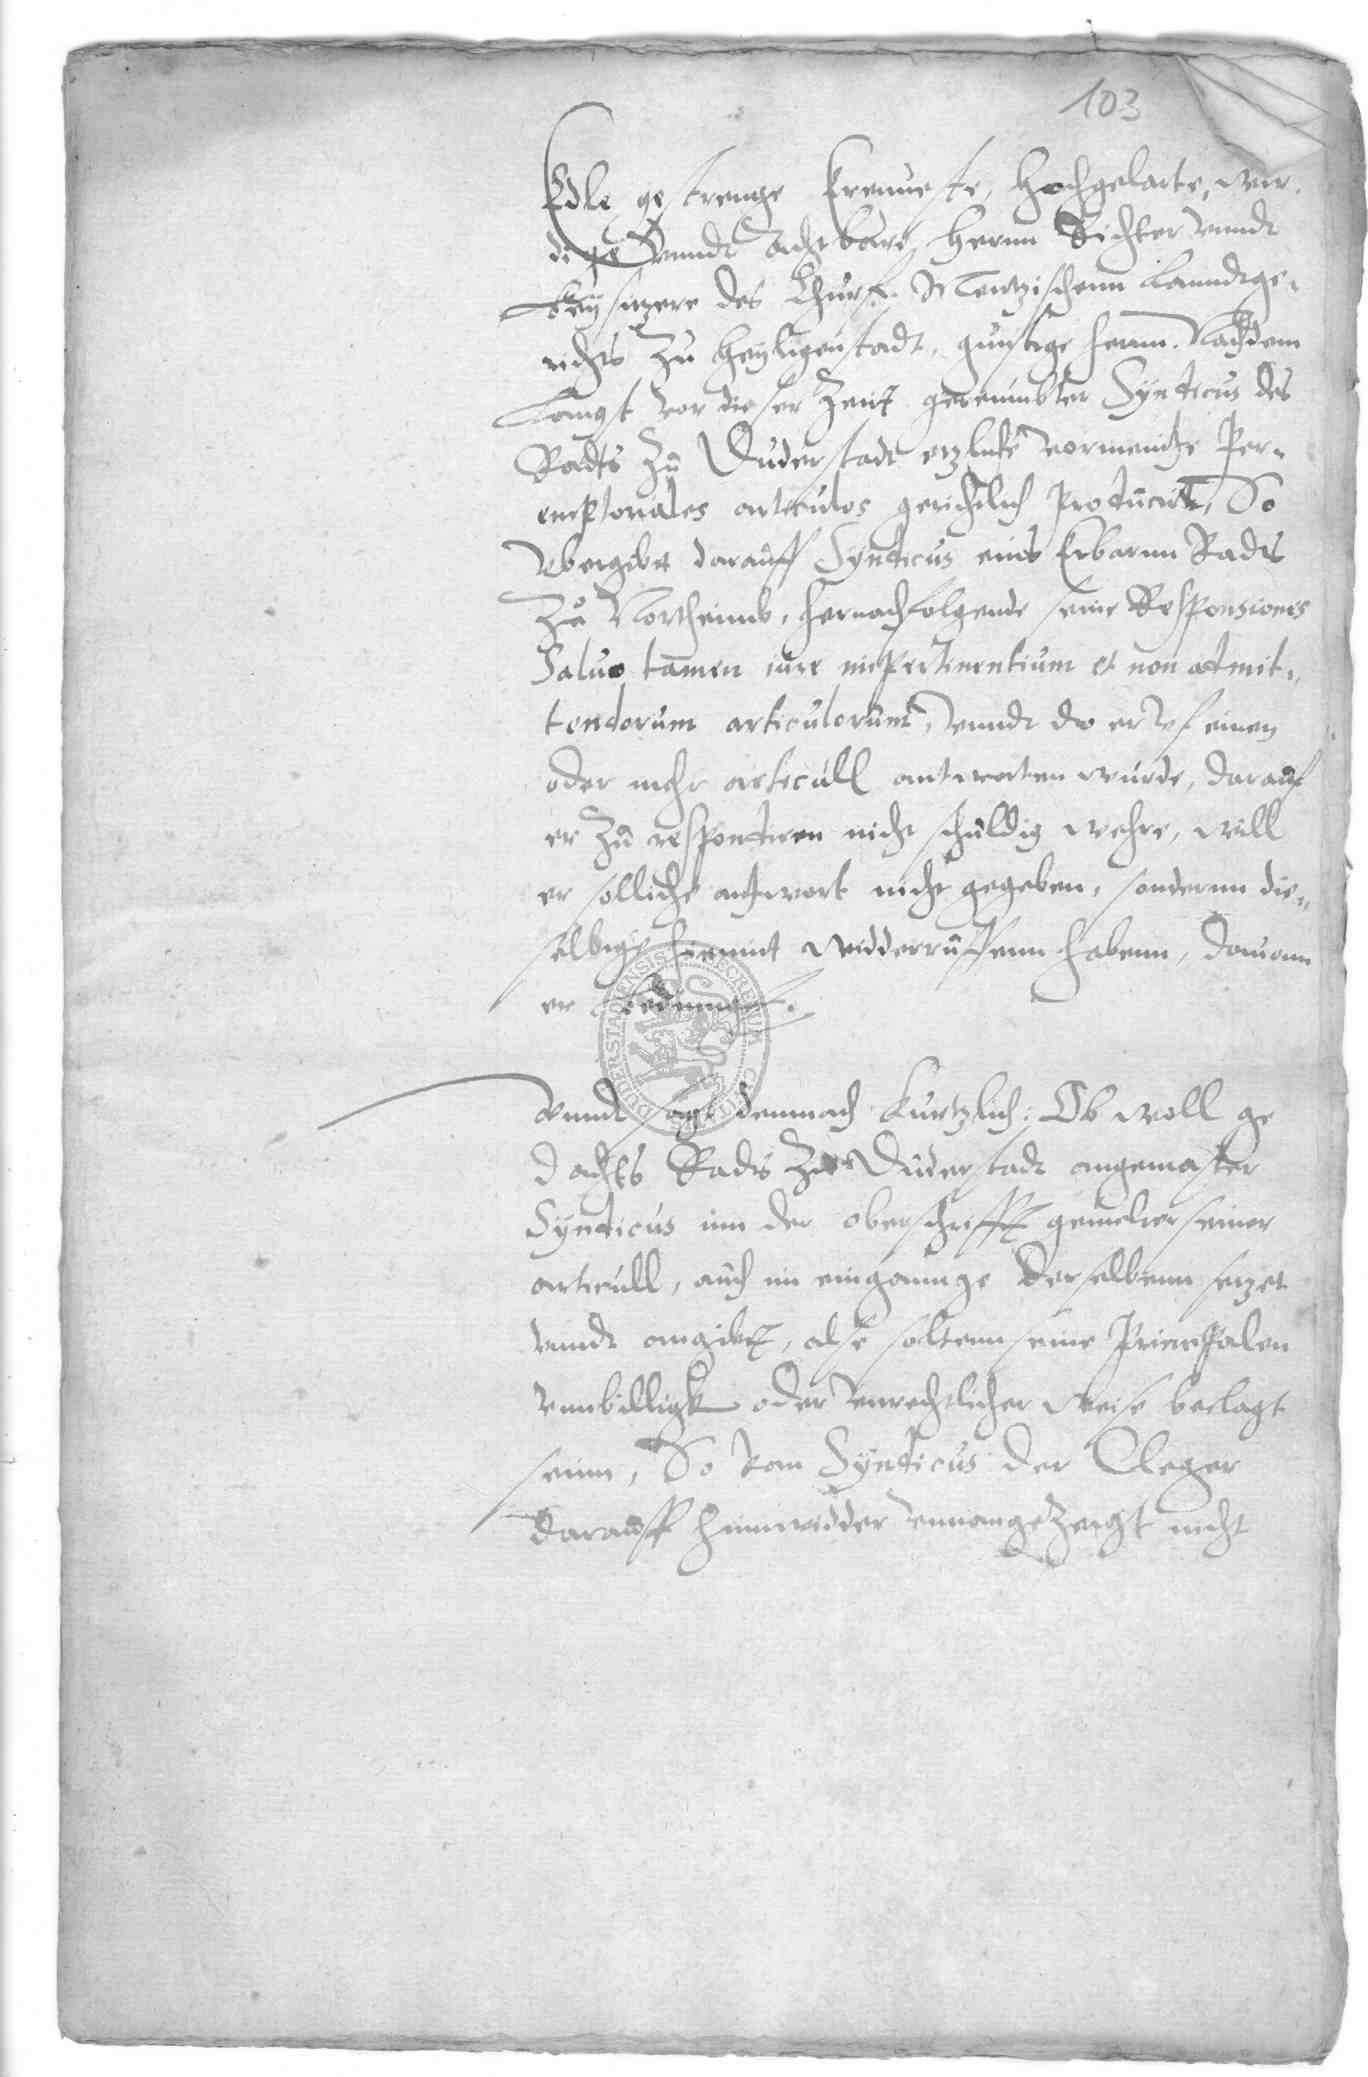 103
Edle gestrenge Erenueste, Hochgelarte, wir-
dige vnndt Achtbare, Herrn Richter vnndt
beysitzere des Churf. Mentzischenn Lanndtge-
richts zu Heyligenstadt, gunstige hernn. Nachdem
langst vor dieser Zeit genenndter Syndicus des
Radts zu Duderstadt etzliche vormeinte Per-
emptoriales articulos gerichtlich Producirt, So
vbergibt darauff Syndicus eins Erbarnn Radts
zu Northeimb, hernachfolgende seine Responsiones
Saluo tamen iure inpertinentium et non admit-
tendorum articulorum, vnndt do er vf einen
oder mehr articull antworten wurde, darauf
er zu respondiren nicht schuldig wehre, will
er solliche antwort nicht gegeben, sondernn die-
selbige hiemit widderruffenn habenn, dauonn
er bedingt.
Vnndt sagt demnach kurtzlich: Ob woll ge
dachts Radts zu Duderstadt angemaster
Syndicus inn der oberschrifft gemelter seiner
articull, auch im eingannge derselbenn setzet
vnndt angibt, alse soltenn seine Principalen
vnnbilligk oder vnrechtlicher weise beclagt
seinn, So kan Syndicus der Cleger
darauff hinnwidder vnnangezeigt nicht
DUDERSTADENSIS SECRETUM